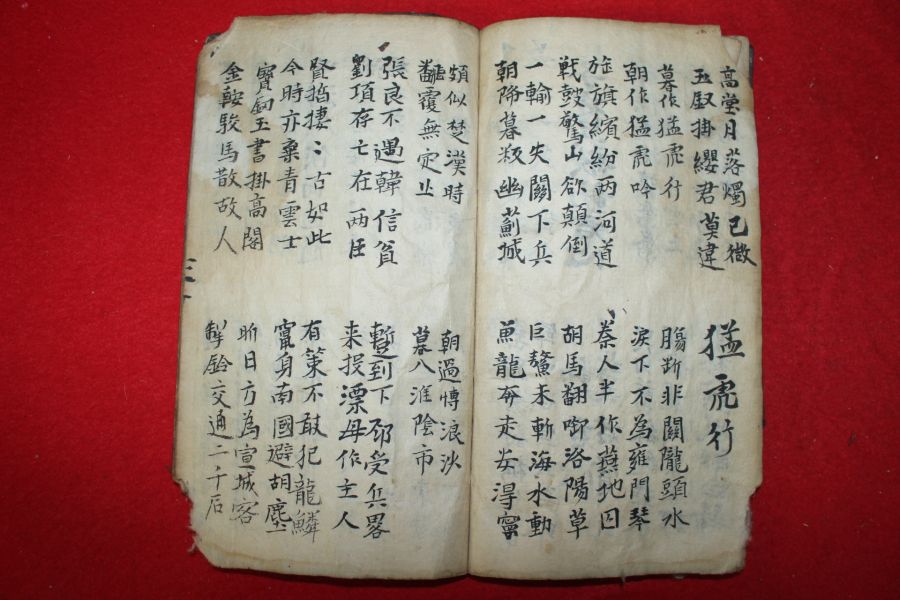 高堂月落燭已微
玉釵掛纓君莫違
猛虎行
暮作猛虎行
朝作猛虎吟
腸斷非關隴頭水
淚下不為雍門琴
旌旗繽紛兩河道
戰鼓驚山欲顛倒
秦人半作燕地囚
胡馬翻啣洛陽草
一輸一失關下兵
朝降暮叛幽薊城
巨鰲未斬海水動
魚龍奔走安得寧
頗似楚漢時
飜覆無定止
朝過博浪沙
暮入淮陰市
張良不遇韓信貧
劉項存亡在兩臣
蹔到下邳受兵畧
来投漂母作主人
賢哲捿〻古如此
今時亦棄青雲士
有策不敢犯龍鱗
竄身南國避胡塵
寶釰玉書掛高閣
金鞍駿馬散故人
昨日方為宣城客
掣鈴交通二千石